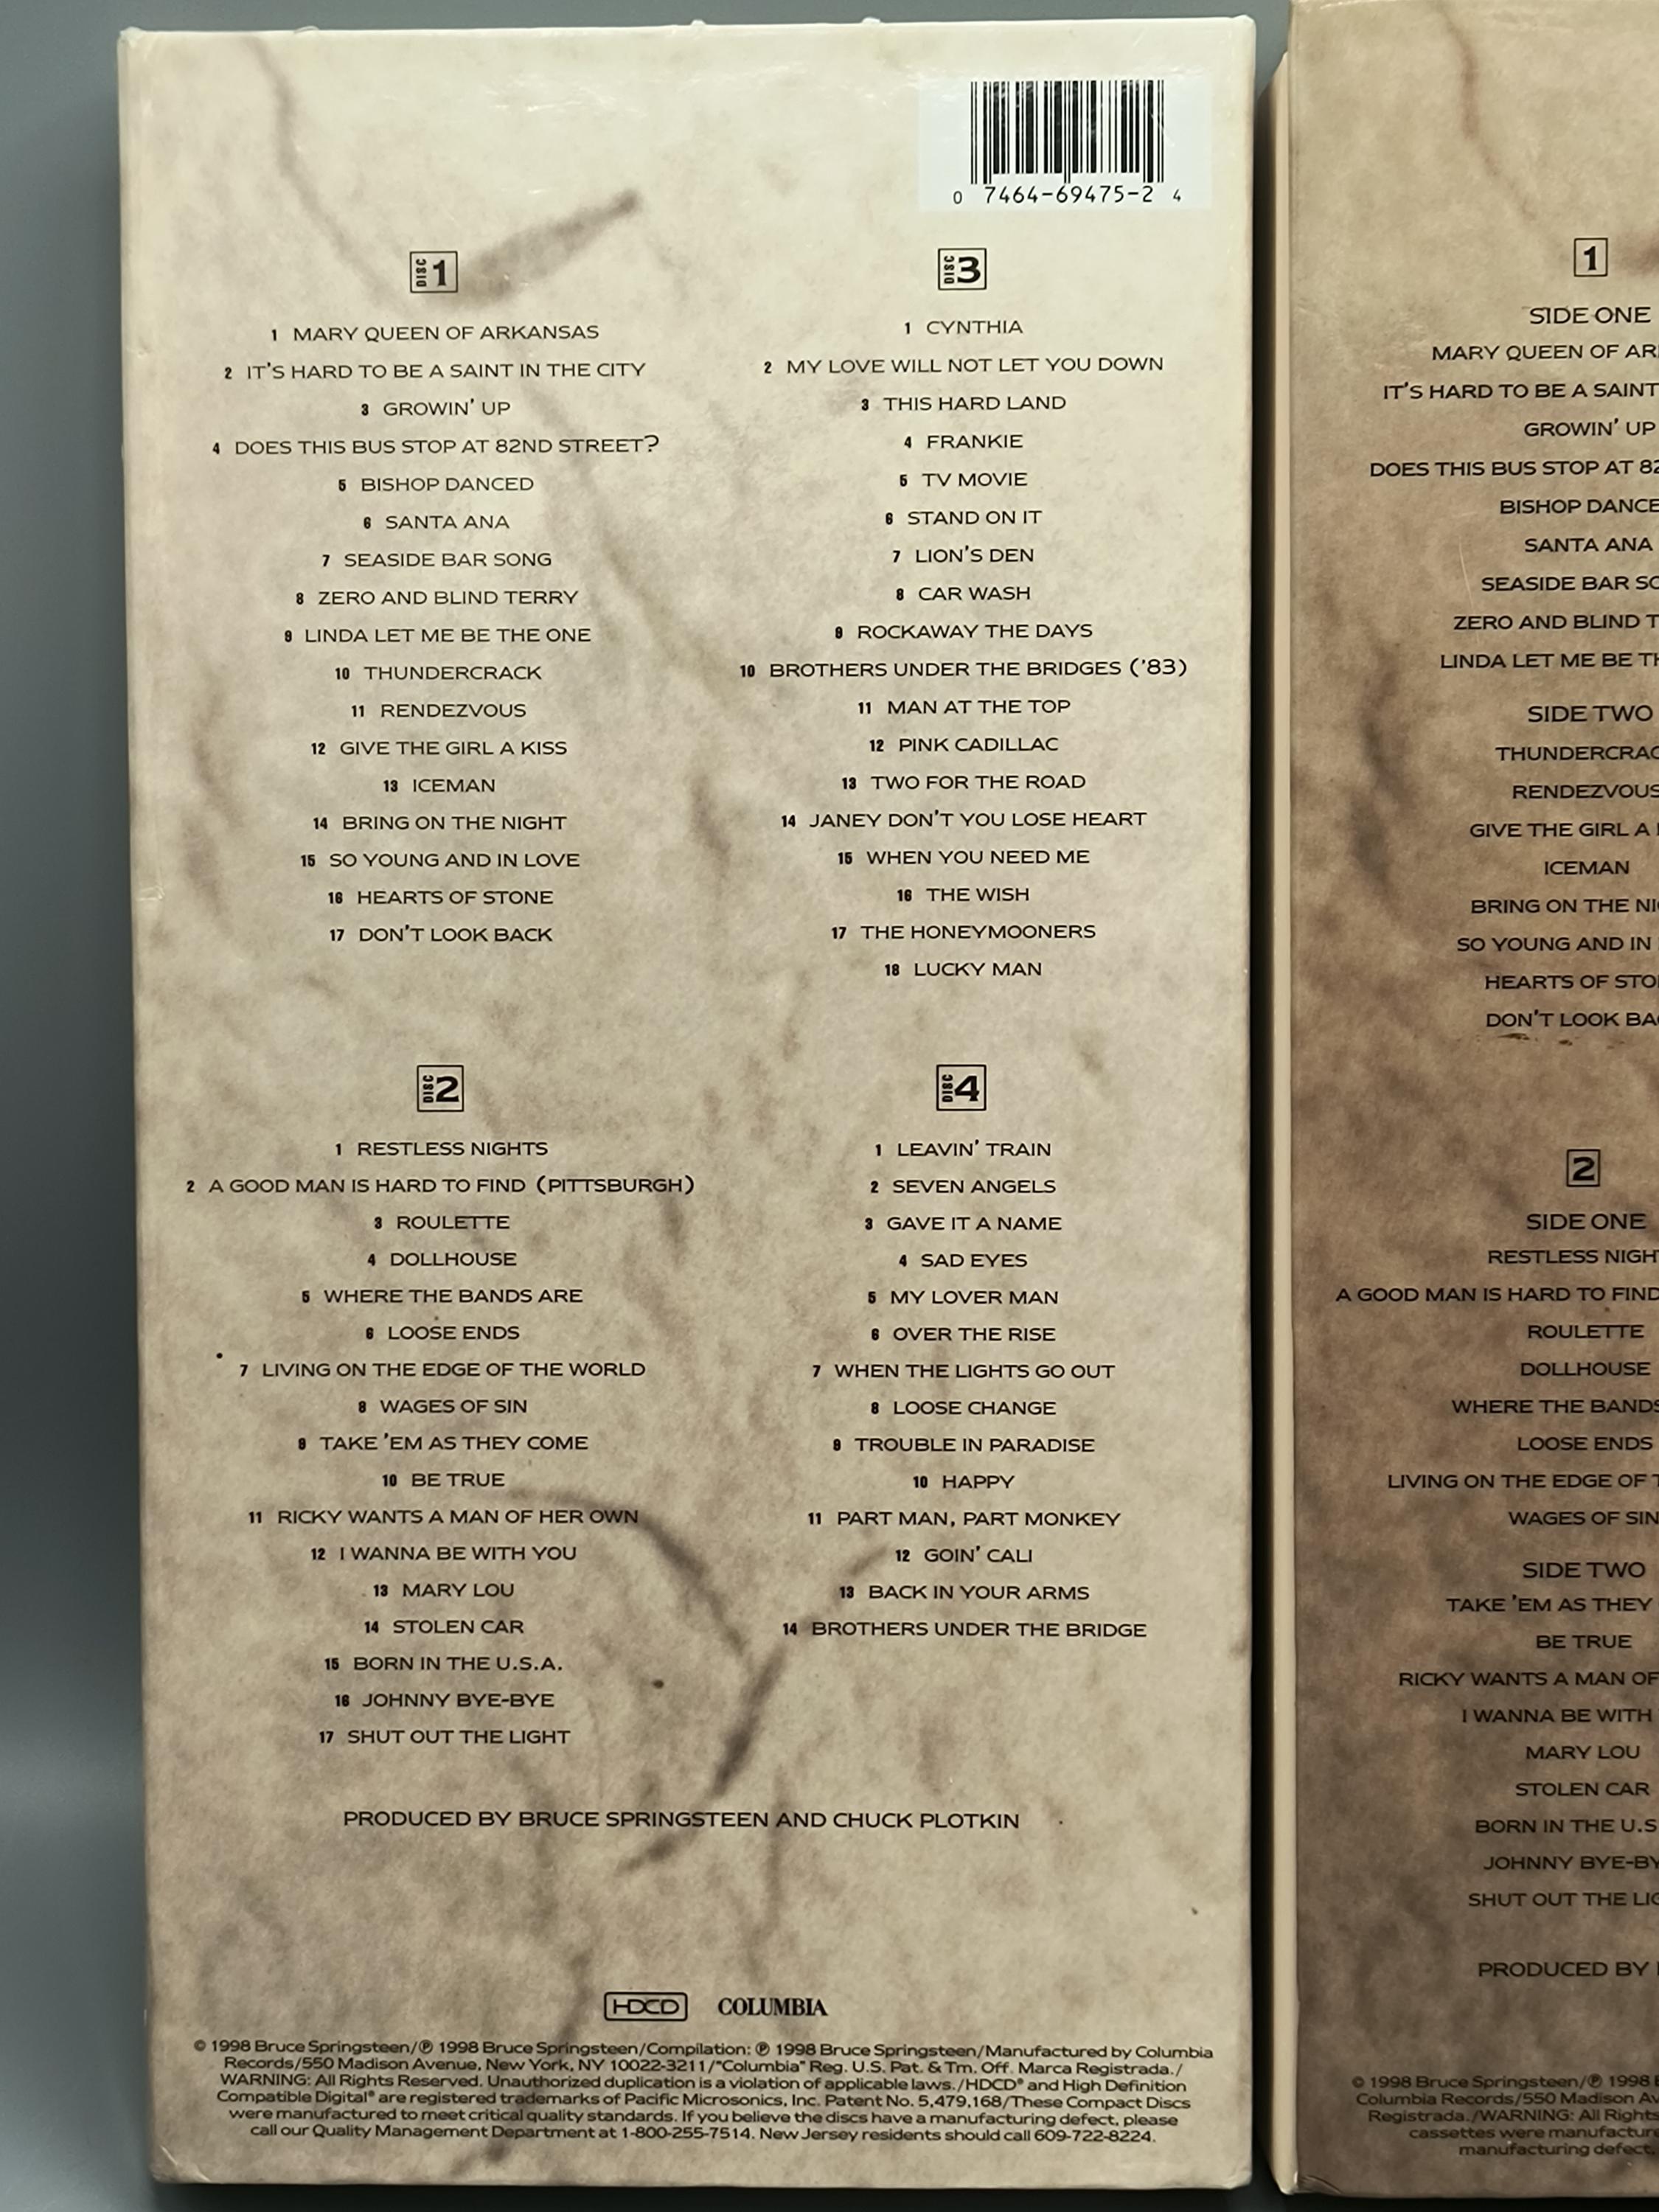 0 7464-69475-2 4
DISC 1
1 MARY QUEEN OF ARKANSAS
2 IT'S HARD TO BE A SAINT IN THE CITY
3 GROWIN' UP
4 DOES THIS BUS STOP AT 82ND STREET?
5 BISHOP DANCED
6 SANTA ANA
7 SEASIDE BAR SONG
8 ZERO AND BLIND TERRY
9 LINDA LET ME BE THE ONE
10 THUNDERCRACK
11 RENDEZVOUS
12 GIVE THE GIRL A KISS
13 ICEMAN
14 BRING ON THE NIGHT
15 SO YOUNG AND IN LOVE
16 HEARTS OF STONE
17 DON'T LOOK BACK
DISC 2
1 RESTLESS NIGHTS
2 A GOOD MAN IS HARD TO FIND (PITTSBURGH)
3 ROULETTE
4 DOLLHOUSE
5 WHERE THE BANDS ARE
6 LOOSE ENDS
7 LIVING ON THE EDGE OF THE WORLD
8 WAGES OF SIN
9 TAKE 'EM AS THEY COME
10 BE TRUE
11 RICKY WANTS A MAN OF HER OWN
12 I WANNA BE WITH YOU
13 MARY LOU
14 STOLEN CAR
15 BORN IN THE U.S.A.
16 JOHNNY BYE-BYE
17 SHUT OUT THE LIGHT
DISC 3
1 CYNTHIA
2 MY LOVE WILL NOT LET YOU DOWN
3 THIS HARD LAND
4 FRANKIE
5 TV MOVIE
6 STAND ON IT
7 LION'S DEN
8 CAR WASH
9 ROCKAWAY THE DAYS
10 BROTHERS UNDER THE BRIDGES ('83)
11 MAN AT THE TOP
12 PINK CADILLAC
13 TWO FOR THE ROAD
14 JANEY DON'T YOU LOSE HEART
15 WHEN YOU NEED ME
16 THE WISH
17 THE HONEYMOONERS
18 LUCKY MAN
DISC 4
1 LEAVIN' TRAIN
2 SEVEN ANGELS
3 GAVE IT A NAME
4 SAD EYES
5 MY LOVER MAN
6 OVER THE RISE
7 WHEN THE LIGHTS GO OUT
8 LOOSE CHANGE
9 TROUBLE IN PARADISE
10 HAPPY
11 PART MAN, PART MONKEY
12 GOIN' CALI
13 BACK IN YOUR ARMS
14 BROTHERS UNDER THE BRIDGE
PRODUCED BY BRUCE SPRINGSTEEN AND CHUCK PLOTKIN
HDCD COLUMBIA
© 1998 Bruce Springsteen/℗ 1998 Bruce Springsteen/Compilation: ℗ 1998 Bruce Springsteen/Manufactured by Columbia
Records/550 Madison Avenue, New York, NY 10022-3211/"Columbia" Reg. U.S. Pat. & Tm. Off. Marca Registrada./
WARNING: All Rights Reserved. Unauthorized duplication is a violation of applicable laws./HDCD® and High Definition
Compatible Digital® are registered trademarks of Pacific Microsonics, Inc. Patent No. 5,479,168/These Compact Discs
were manufactured to meet critical quality standards. If you believe the discs have a manufacturing defect, please
call our Quality Management Department at 1-800-255-7514. New Jersey residents should call 609-722-8224.
1
SIDE ONE
MARY QUEEN OF AR
IT'S HARD TO BE A SAINT
GROWIN' UP
DOES THIS BUS STOP AT 82
BISHOP DANCE
SANTA ANA
SEASIDE BAR SO
ZERO AND BLIND T
LINDA LET ME BE TH
SIDE TWO
THUNDERCRAC
RENDEZVOUS
GIVE THE GIRL A
ICEMAN
BRING ON THE NI
SO YOUNG AND IN
HEARTS OF STO
DON'T LOOK BA
2
SIDE ONE
RESTLESS NIGH
A GOOD MAN IS HARD TO FIND
ROULETTE
DOLLHOUSE
WHERE THE BANDS
LOOSE ENDS
LIVING ON THE EDGE OF T
WAGES OF SIN
SIDE TWO
TAKE 'EM AS THEY
BE TRUE
RICKY WANTS A MAN OF
I WANNA BE WITH
MARY LOU
STOLEN CAR
BORN IN THE U.S
JOHNNY BYE-BY
SHUT OUT THE LIG
PRODUCED BY
© 1998 Bruce Springsteen/℗ 1998
Columbia Records/550 Madison Av
Registrada./WARNING: All Rights
cassettes were manufacture
manufacturing defect,